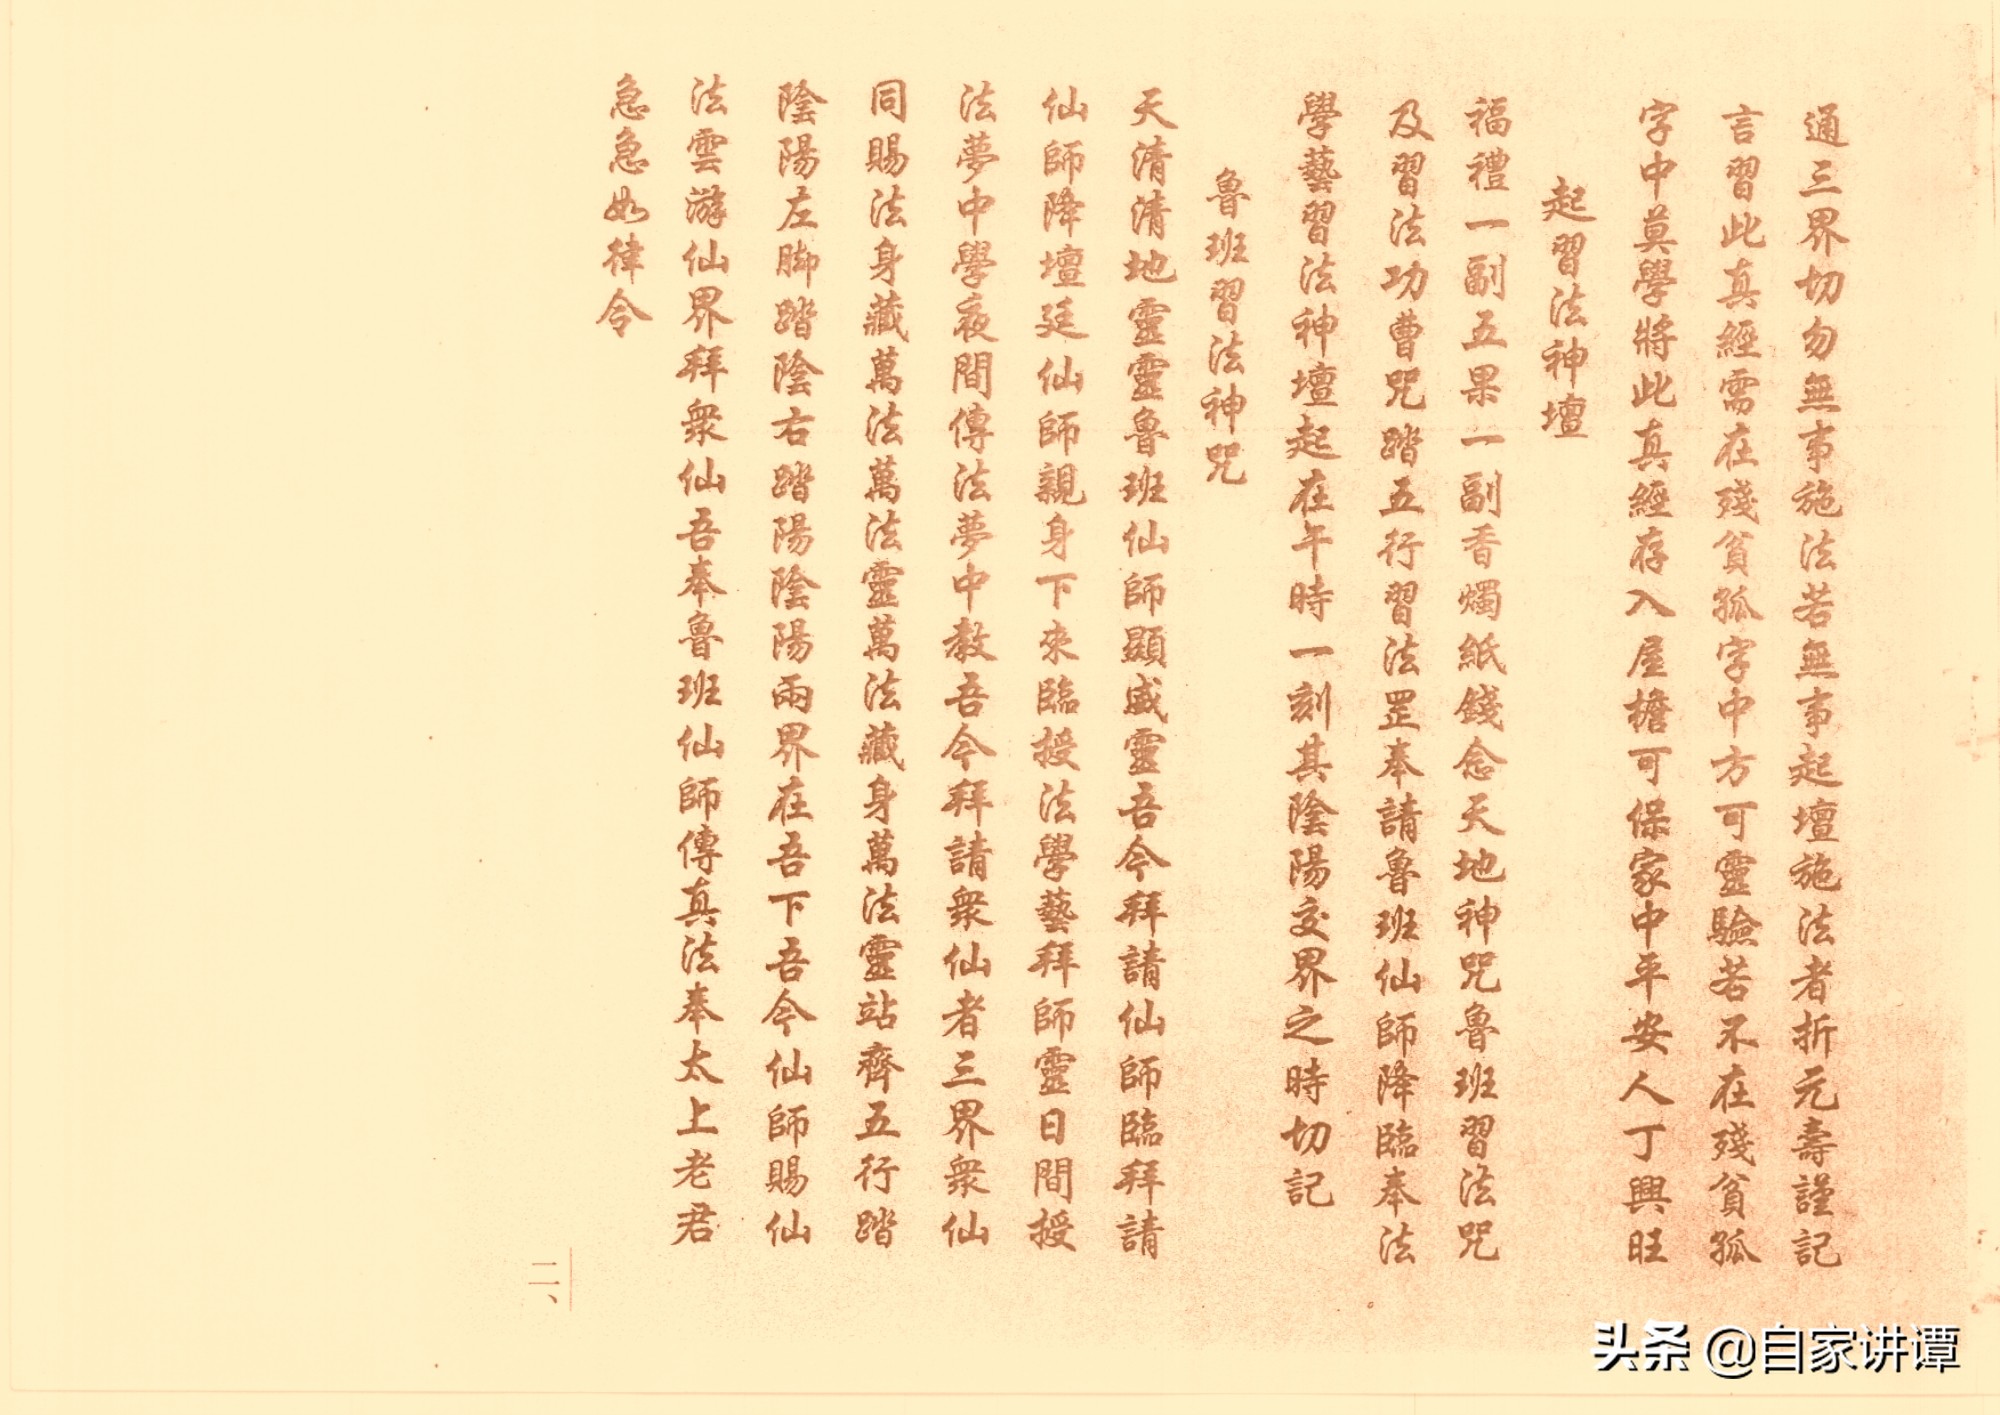 通三界切勿無事施法若無事起壇施法者折元壽謹記
言習此真經需在殘貧孤字中方可靈驗若不在殘貧孤
字中莫學將此真經存入屋檐可保家中平安人丁興旺
起習法神壇
福禮一副五果一副香燭紙錢念天地神咒魯班習法咒
及習法功曹咒踏五行習法罡奉請魯班仙師降臨奉法
學藝習法神壇起在午時一刻其陰陽交界之時切記
魯班習法神咒
天清清地靈靈魯班仙師顯威靈吾今拜請仙師臨拜請
仙師降壇廷仙師親身下來臨授法學藝拜師靈日間授
法夢中學夜間傳法夢中教吾今拜請眾仙者三界眾仙
同賜法身藏萬法萬法靈萬法藏身萬法靈站齊五行踏
陰陽左脚踏陰右踏陽陰陽兩界在吾下吾今仙師賜仙
法雲游仙界拜眾仙吾奉魯班仙師傳真法奉太上老君
急急如律令
二、
头条 @自家讲谭